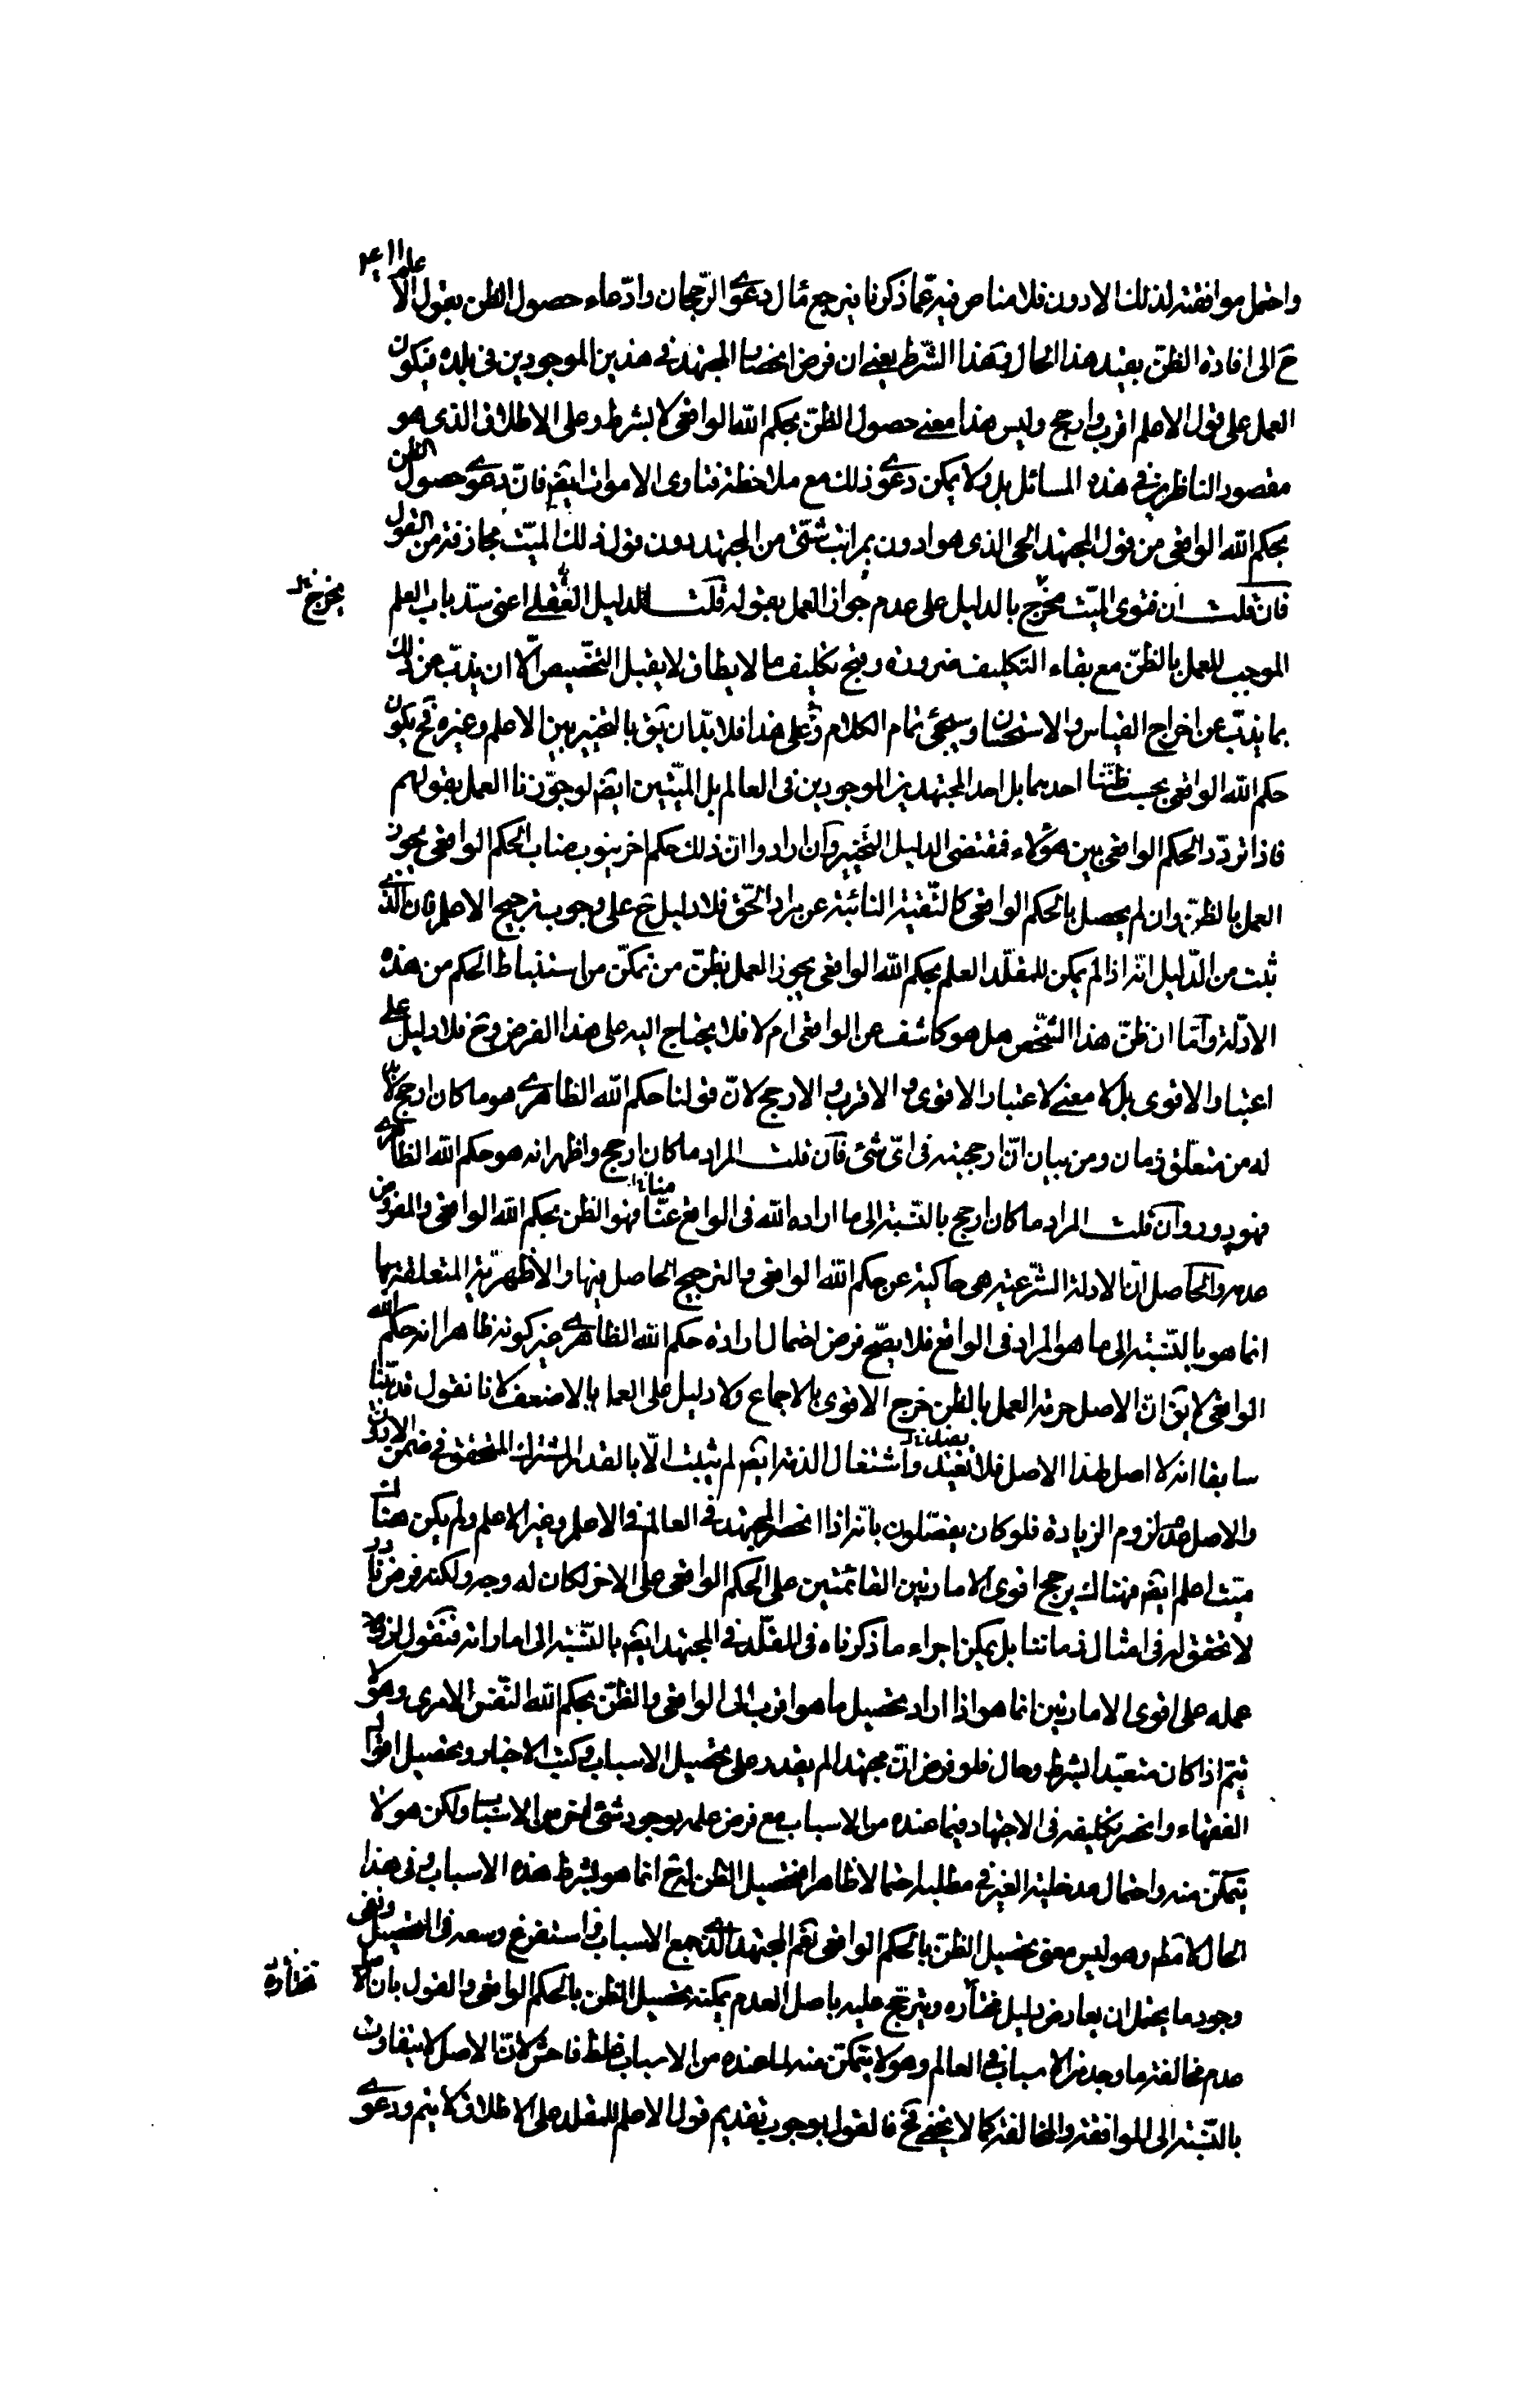 واحتمل موافقته لذلك الادون فلا مناص فيه عما ذكرنا فيرجع مآل دعوى الرجحان وادّعاء حصول الظن بقول الاعلم
ح الى افادة الظنّ بقيد هذا الحال وبهذا الشرط يعنى ان فرض انحصار المجتهد فى هذين الموجودين فى بلده فيكون
العمل على قول الاعلم اقرب وارجح وليس هذا معنى حصول الظنّ بحكم الله الواقعى لا بشرط وعلى الاطلاق الذى هو
مقصود الناظرين فى هذه المسائل بل ولا يمكن دعوى ذلك مع ملاحظة فتاوى الاموات ايضا فانّ دعوى حصول الظن
بحكم الله الواقعى من قول المجتهد الحى الذى هو ادون بمراتب شتّى من المجتهد دون قول ذلك الميّت مجازفة من القول
فان قلت ان فتوى الميّت مخرج بالدليل على عدم جواز العمل بقوله قلت الدليل العقلى اعنى سدّ باب العلم
مخرج
الموجب للعمل بالظنّ مع بقاء التكليف ضرورة وقبح تكليف ما لا يطاق لا يقبل التخصيص الّا ان يذبّ عن ذلك
بما يذبّ عن اخراج القياس والاستحسان وسيجئ تمام الكلام فعلى هذا فلا بدّ ان يق بالتخيير بين الاعلم وغيره فح يكون
حكم الله الواقعى بحسب ظنّنا احدهما بل احد المجتهدين الموجودين فى العالم بل الميّتين ايضا لو جوّزنا العمل بقولهم
فاذا تردّد الحكم الواقعى بين هؤلاء فمقتضى الدليل التخيير وان ارادوا انّ ذلك حكم اخر ينوب مناب الحكم الواقعى يجوز
العمل بالظنّ وان لم يحصل بالحكم الواقعى كالتقيّة النائبة عن مراد الحقّ فلا دليل ح على وجوب ترجيح الاعلم فان الذى
ثبت من الدّليل انّه اذا لم يمكن للمقلّد العلم بحكم الله الواقعى يجوز العمل بظنّ من تمكّن من استنباط الحكم من هذه
الادلّة وامّا ان ظنّ هذا الشخص هل هو كاشف عن الواقعى ام لا فلا يحتاج اليه على هذا الفرض وح فلا دليل على
اعتبار الاقوى بل لا معنى لاعتبار الاقوى والاقرب والارجح لانّ قولنا حكم الله الظاهرى هو ما كان ارجح لا بدّ
له من متعلّق زمان ومن بيان انّ ارجحيته فى اىّ شئ فان قلت المراد ما كان ارجح واظهر انه هو حكم الله الظاهرى
فهو دور وان قلت المراد ما كان ارجح بالنّسبة الى ما اراده الله فى الواقع عنّا فهو الظن بحكم الله الواقعى والمفروض
منا
عدمه والحاصل انّ الادلة الشّرعيّه هى حاكية عن حكم الله الواقعى والترجيح الحاصل فيها والاظهريّة المتعلقة بها
انما هو بالنّسبة الى ما هو المراد فى الواقع فلا يصّح فرض احتمال ارادة حكم الله الظاهرى غير كونه ظاهرا انه حكم الله
الواقعى لا يق انّ الاصل حرمة العمل بالظن خرج الاقوى بالاجماع ولا دليل على العمل بالاضعف لانا نقول قد بيّنّا
سابقا انه لا اصل لهذا الاصل فلا نعيد واشتغال الذمّة ايضا لم يثبت الّا بالقدر المشترك المتحقق فى ضمن الادون
والاصل عدم لزوم الزيادة فلو كان يفصّلون بانّه اذا انحصر المجتهد فى العالم فى الاعلم وغير الاعلم ولم يكن هناك
ميّت اعلم ايضا فهناك يرجح اقوى الامارتين القائمتين على الحكم الواقعى على الاخر لكان له وجه ولكنه فرض نادر
لا تحقق له فى امثال زماننا بل يمكن اجراء ما ذكرناه فى المقلّد فى المجتهد ايضا بالنّسبة الى اماراته فنقول لزوم
عمله على اقوى الامارتين انما هو اذا اراد تحصيل ما هو اقرب الى الواقعى والظنّ بحكم الله النّفس الامرى وهو لا
يتمّ اذا كان متعبّدا بشرط وحال فلو فرض انّ مجتهدا لم يقدر على تحصيل الاسباب وكتب الاخبار وتحصيل اقوال
الفقهاء وانحصر تكليفه فى الاجتهاد فيما عنده من الاسباب مع فرض علمه بوجود شئ اخر من الاسباب ولكن هو لا
يتمكّن منه واحتمال مدخلية الغير فى مطلبه احتمالا ظاهرا فتحصيل الظن له ح انما هو بشرط هذه الاسباب وفى هذا
الحال لا مطلقا وهو ليس معنى تحصيل الظنّ بالحكم الواقعى نعم المجتهد الذى جمع الاسباب واستفرغ وسعه فى التحصيل ونفى
وجود ما يحتمل ان يعارض دليل مختاره ويترجّح عليه باصل العدم يمكنه تحصيل الظن بالحكم الواقعى والقول بان الاصل
مختاره
عدم مخالفة ما وجد من الاسباب فى العالم وهو لا يتمكّن منه لما عنده من الاسباب غلط فاحش لانّ الاصل لا يتفاوت
بالنّسبة الى الموافقة والمخالفة كما لا يخفى فح فالقول بوجوب تقديم قول الاعلم للمقلد على الاطلاق لا يتم ودعوى